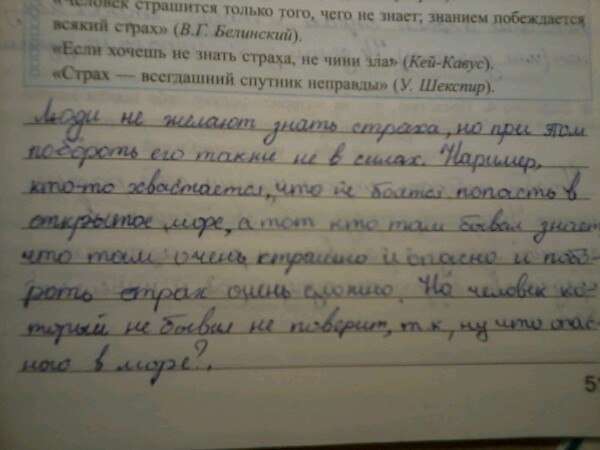 «Человек страшится только того, чего не знает; знанием побеждается
всякий страх» (В.Г. Белинский).
«Если хочешь не знать страха, не чини зла» (Кей-Кавус).
«Страх — всегдашний спутник неправды» (У. Шекспир).
Люди не желают знать страха, но при этом
побороть его также не в силах. Наример,
кто-то хвастается, что не боятся попасть в
открытое море, а тот кто там бывал знает
что там очень страшно и опасно и побо-
роть страх очень сложно. Но человек ко-
торый не бывал не поверит, т.к, ну что опас-
ного в море?.
5